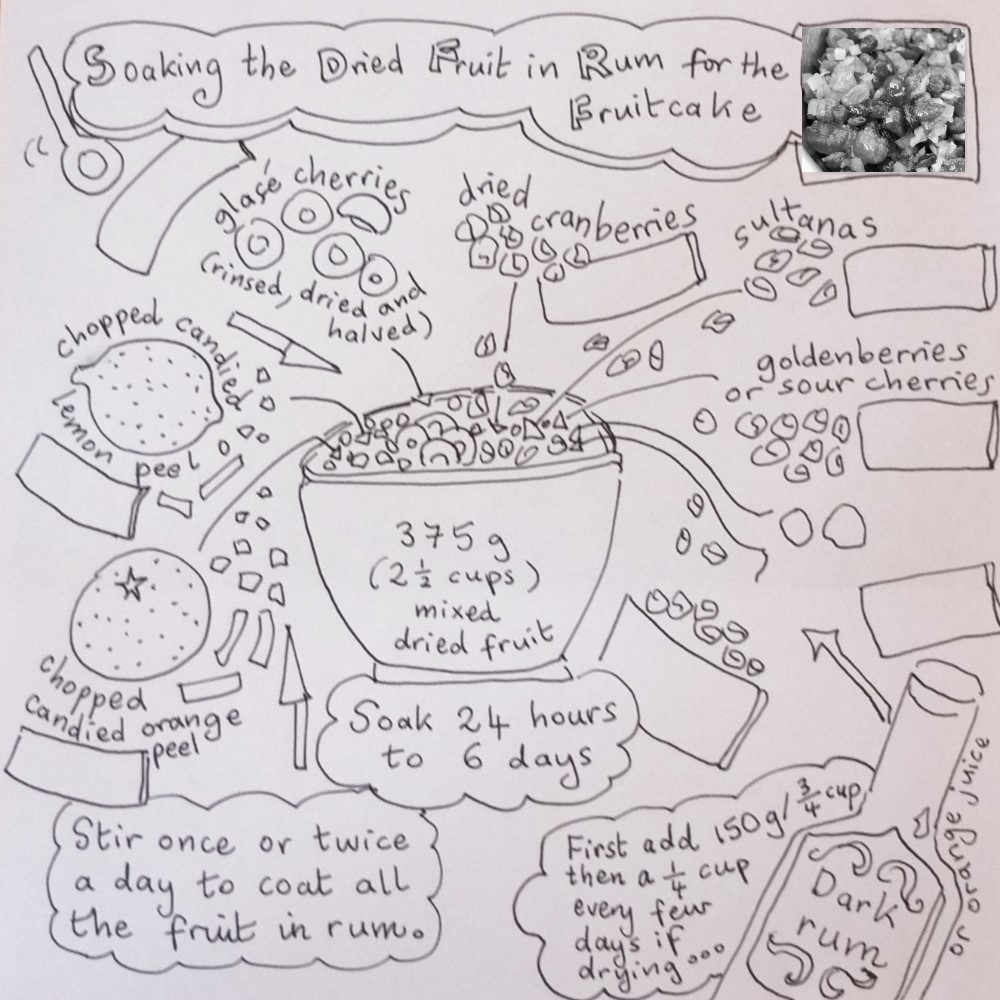 Soaking the Dried Fruit in Rum for the
Fruitcake
glasé cherries
(rinsed, dried and
halved)
dried
cranberries
sultanas
chopped candied
lemon peel
goldenberries
or sour cherries
375g
(2½ cups)
mixed
dried fruit
chopped
candied orange
peel
Soak 24 hours
to 6 days
Stir once or twice
a day to coat all
the fruit in rum.
First add 150g/¾ cup
then a ¼ cup
every few
days if
drying...
Dark
rum
or orange juice